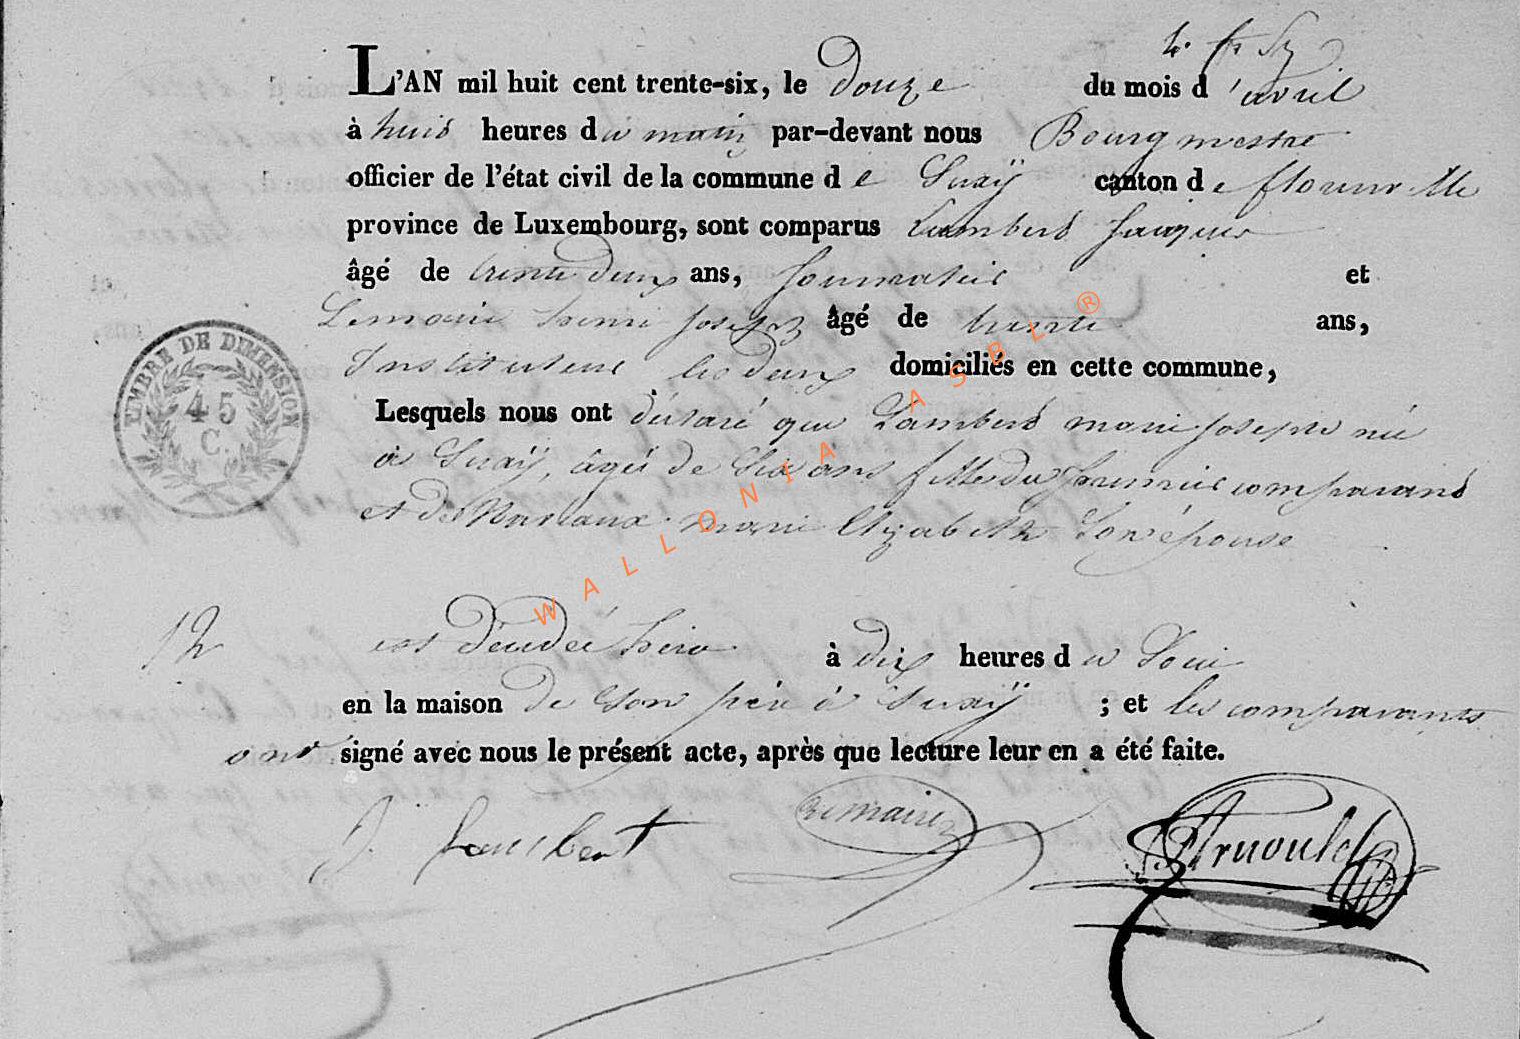 L'AN mil huit cent trente-six, le douze du mois d'avril
à huit heures du matin par-devant nous Bourgmestre
officier de l'état civil de la commune de Suxÿ canton de florenville
province de Luxembourg, sont comparus Lambert Jacques
âgé de trente deux ans, et
Lemaire henri joseph âgé de trente ans,
Instituteur les deux domiciliés en cette commune,
Lesquels nous ont déclaré que Lambert marie josephe née
à Suxÿ, âgée de Six ans fille du premier comparant
et de marie Elizabeth Son épouse
12
est décedée hier à dix heures du Soir
en la maison de son père à Suxÿ ; et les comparants
ont signé avec nous le présent acte, après que lecture leur en a été faite.
J. Lambert Lemaire Arnould
TIMBRE DE DIMENSION
45
C.
WALLONIA ASBL ®